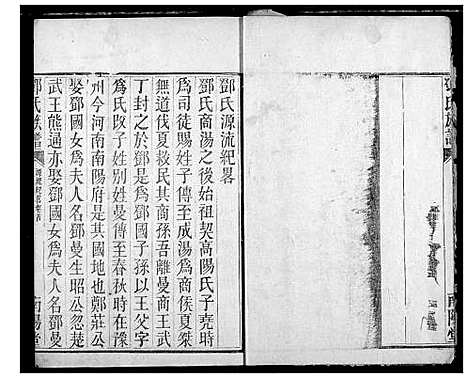 鄧氏族譜
南陽堂
鄧氏源流紀畧
鄧氏商湯之後始祖契高陽氏子堯時
爲司徒賜姓子傳至成湯爲商侯夏桀
無道伐夏救民其商孫吾離曼商王武
丁封之於鄧是爲鄧國子孫以王父字
爲氏改子姓别姓曼至春秋時在豫
州今河南南陽府是其國地也鄭莊公
娶鄧國女爲夫人名鄧曼生昭公忽楚
武王熊通亦娶鄧國女爲夫人名鄧曼
鄧氏族譜
南陽堂